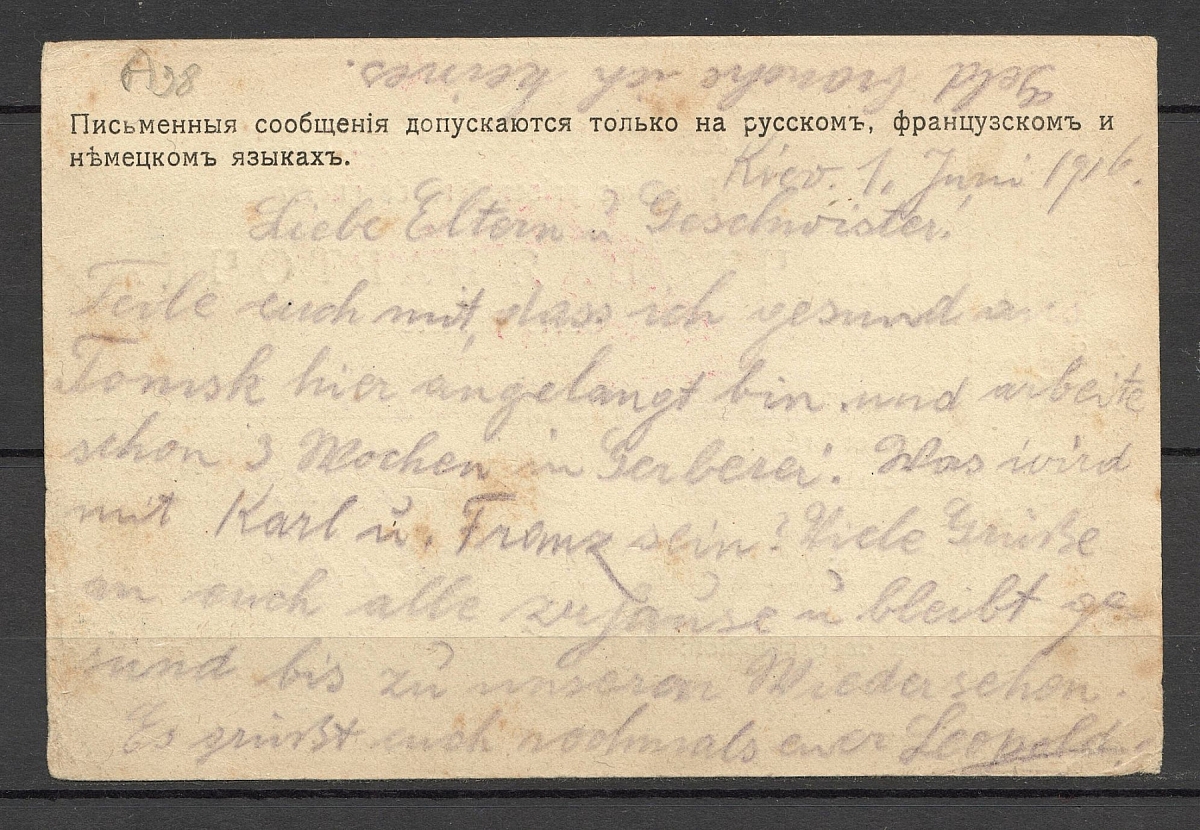 A98
Geld brauche ich keines.
Письменныя сообщенія допускаются только на русскомъ, французскомъ и
нѣмецкомъ языкахъ.
Kiev. 1. Juni 1916.
Liebe Eltern u Geschwister.
Teile euch mit, dass ich gesund aus
Tomsk hier angelangt bin und arbeite
schon 3 Wochen in Gerberei. Was wird
mit Karl u. Franz sein? Viele Grüße
an euch alle zuhause u bleibt ge
sund bis zu unseren Wiedersehen.
Es grüßt euch nochmals euer Leopold.